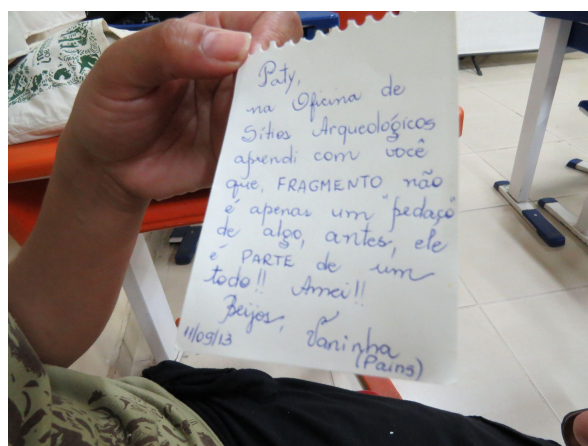 Paty,
na Oficina de
Sítios Arqueológicos
aprendi com você
que, FRAGMENTO não
é apenas um "pedaço"
de algo, antes, ele
é PARTE de um
todo!! Amei!!
Beijos,
11/09/13 Vaninha
(Pains)